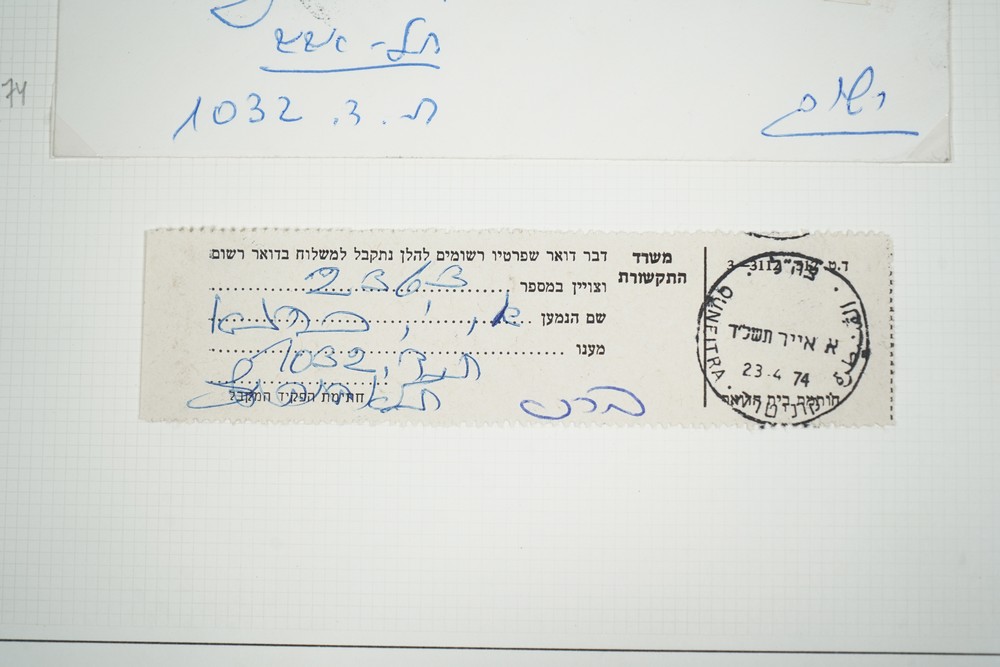 תל-אביב
ת.ד. 1032
רשום
74
משרד
התקשורת
דבר דואר שפרטיו רשומים להלן נתקבל למשלוח בדואר רשום
וצויין במספר
שם הנמען
מענו
ת.ד. 1032
תל אביב
חתימת הפקיד המקבל
צה"ל
QUNEITRA
א אייר תשל"ד
23-4 74
קוניטרה
חותמת בית הדואר